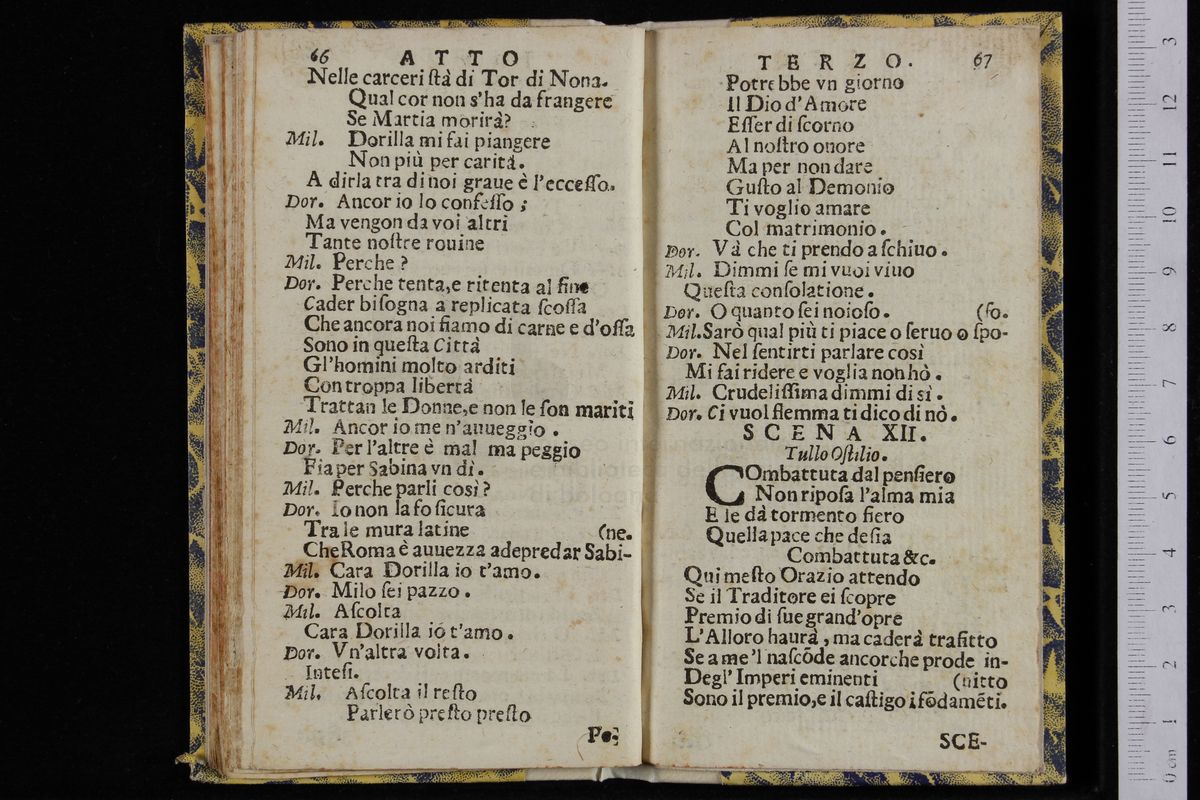 66 ATTO
Nelle carceri ſtà di Tor di Nona.
Qual cor non s'ha da frangere
Se Martia morirà?
Mil. Dorilla mi fai piangere
Non più per carità.
A dirla tra di noi graue è l'ecceſſo.
Dor. Ancor io lo confeſſo ;
Ma vengon da voi altri
Tante noſtre rouine
Mil. Perche ?
Dor. Perche tenta,e ritenta al fine
Cader biſogna a replicata ſcoſſa
Che ancora noi ſiamo di carne e d'oſſa
Sono in queſta Città
Gl'homini molto arditi
Con troppa libertà
Trattan le Donne,e non le ſon mariti
Mil. Ancor io me n'auueggio .
Dor. Per l'altre è mal ma peggio
Fia per Sabina vn dì .
Mil. Perche parli così ?
Dor. Io non la fo ſicura
Tra le mura latine (ne.
Che Roma è auuezza a depredar Sabi-
Mil. Cara Dorilla io t'amo.
Dor. Milo ſei pazzo .
Mil. Aſcolta
Cara Dorilla iò t'amo .
Dor. Vn'altra volta.
Inteſi.
Mil. Aſcolta il reſto
Parlerò preſto preſto
Po-
TERZO. 67
Potrebbe vn giorno
Il Dio d'Amore
Eſſer di ſcorno
Al noſtro onore
Ma per non dare
Guſto al Demonio
Ti voglio amare
Col matrimonio .
Dor. Và che ti prendo a ſchiuo .
Mil. Dimmi ſe mi vuoi viuo
Queſta conſolatione .
Dor. O quanto ſei noioſo. (ſo.
Mil. Sarò qual più ti piace o ſeruo o ſpo-
Dor. Nel ſentirti parlare così
Mi fai ridere e voglia non hò .
Mil. Crudeliſſima dimmi di sì .
Dor. Ci vuol flemma ti dico di nò .
SCENA XII.
Tullo Oſtilio.
COmbattuta dal penſiero
Non ripoſa l'alma mia
E le dà tormento fiero
Quella pace che deſia
Combattuta &c.
Qui meſto Orazio attendo
Se il Traditore ei ſcopre
Premio di ſue grand'opre
L'Alloro haurà , ma caderà trafitto
Se a me 'l naſcõde ancorche prode in-
Degl' Imperi eminenti (uitto
Sono il premio,e il caſtigo i fõdamẽti.
SCE-